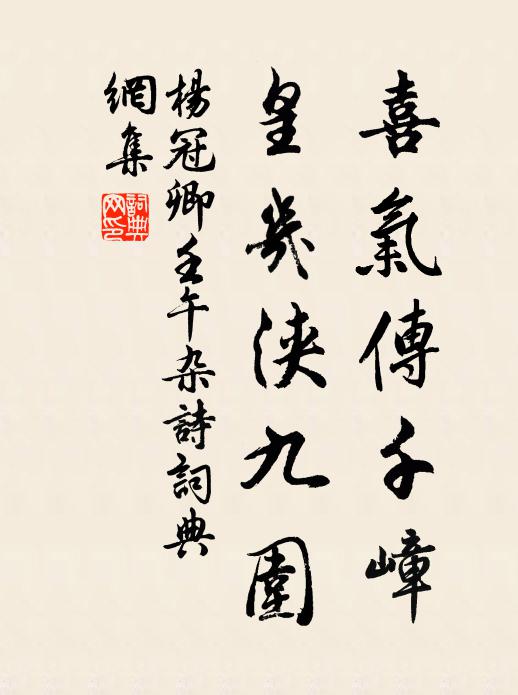 喜氣傳千嶂
皇幾浹九圍
楊冠卿壬午杂詩詞典
網集
詞典
网印